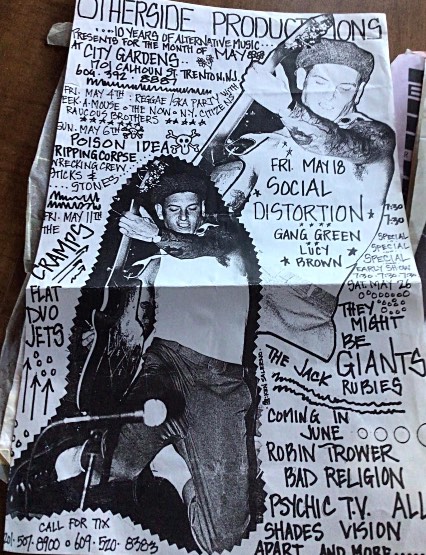 OTHERSIDE PRODUCTIONS
10 YEARS OF ALTERNATIVE MUSIC
PRESENTS FOR THE MONTH OF MAY
AT CITY GARDENS
1701 CALHOUN ST. TRENTON N.J.
FRI. MAY 4TH: REGGAE/SKA PARTY WITH
EEK-A-MOUSE • THE NOW • N.Y. CITIZENS
RAUCOUS BROTHERS
SUN. MAY 6TH
POISON IDEA
RIPPING CORPSE
WRECKING CREW
STICKS &
STONES
FRI. MAY 11TH
THE
CRAMPS
FLAT
DUO
JETS
FRI. MAY 18
SOCIAL
DISTORTION
GANG GREEN
LUCY
BROWN
7:30
7:30
SPECIAL
SPECIAL
SPECIAL
EARLY SHOW
7:30 7:30
SAT. MAY 26
THEY
MIGHT
BE
GIANTS
THE JACK
RUBIES
COMING IN
JUNE
ROBIN TROWER
BAD RELIGION
PSYCHIC T.V. ALL
SHADES VISION
APART AND MORE
CALL FOR TIX
201-507-8900 • 609-520-8383